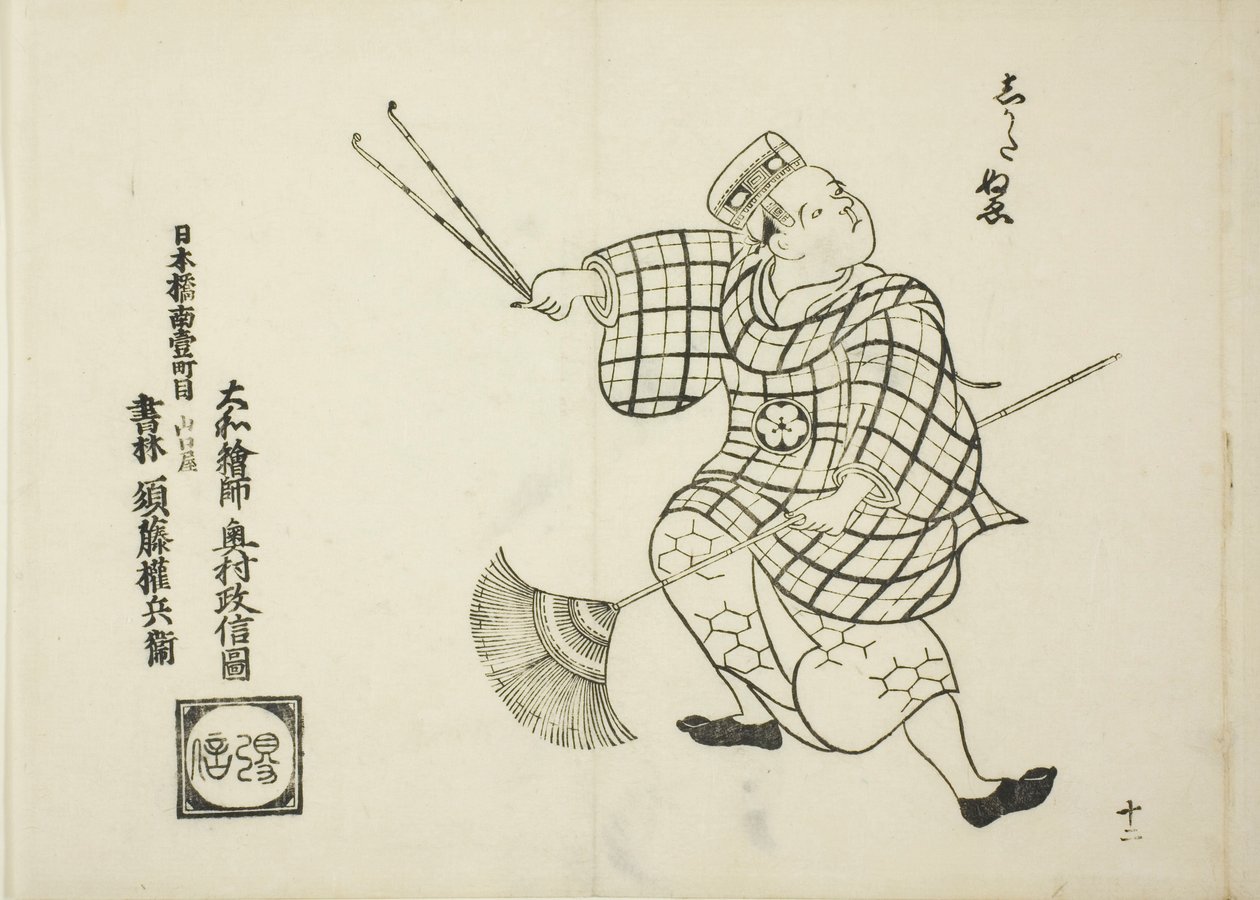 志かた ぬゑ
十二
大和繪師 奥村政信圖
日本橋南壹町目 山口屋
書林 須藤權兵衞